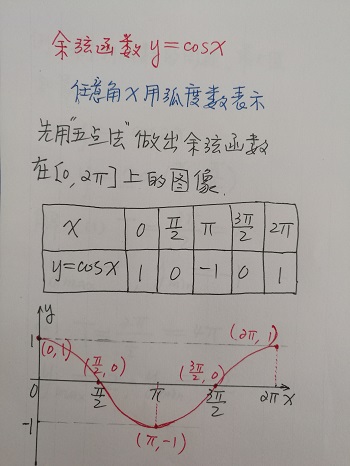 余弦函数 y=cosx
任意角x用弧度数表示
先用"五点法"做出余弦函数
在[0, 2π]上的图像.
x 0 π/2 π 3π/2 2π
y=cosx 1 0 -1 0 1
y
1 (0,1) (π/2, 0) (3π/2, 0) (2π, 1)
0 π/2 π 3π/2 2π x
-1 (π,-1)